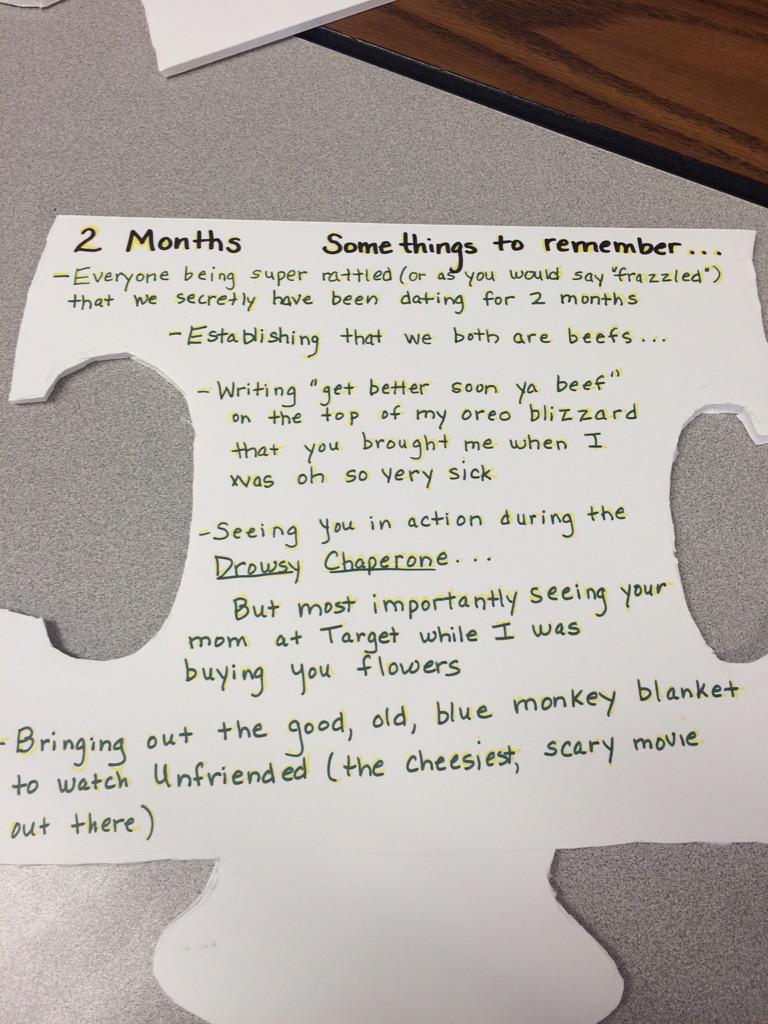 2 Months Some things to remember...
- Everyone being super rattled (or as you would say "frazzled")
that we secretly have been dating for 2 months
- Establishing that we both are beefs...
- Writing "get better soon ya beef"
on the top of my oreo blizzard
that you brought me when I
was oh so very sick
- Seeing you in action during the
Drowsy Chaperone...
But most importantly seeing your
mom at Target while I was
buying you flowers
- Bringing out the good, old, blue monkey blanket
to watch Unfriended (the cheesiest, scary movie
out there)